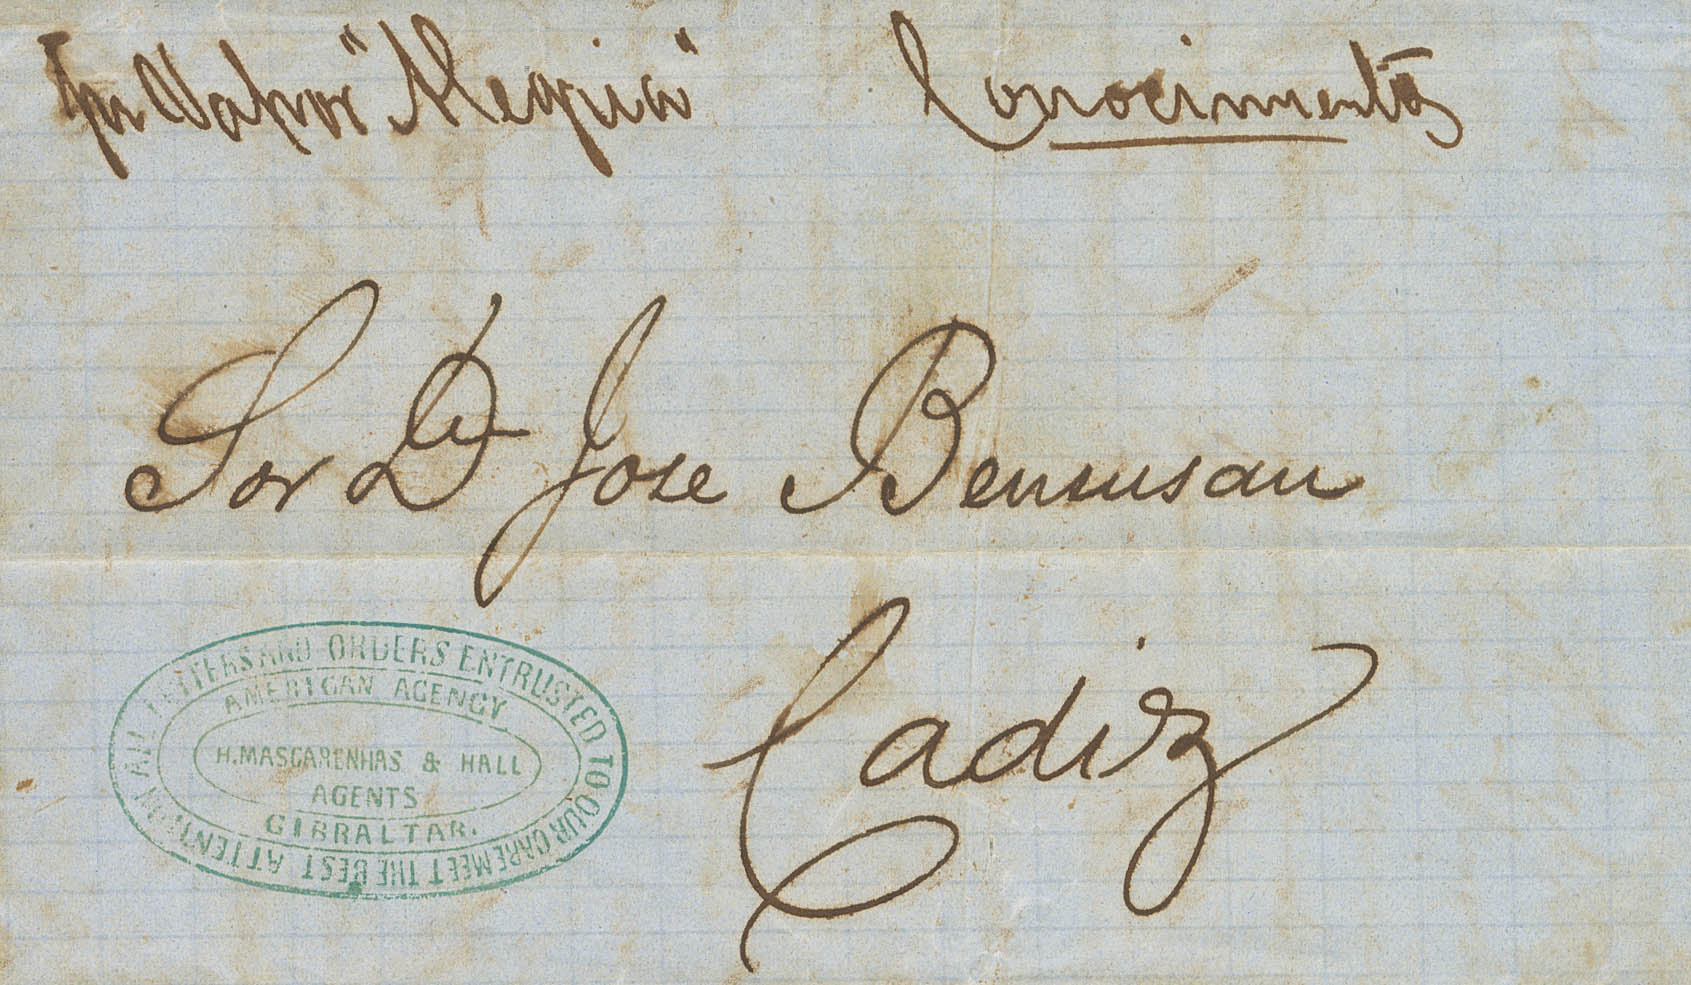 Por Vapor "Alegria" Conocimientos
Sor Dn Jose Benusan
Cadiz
ALL LETTERS AND ORDERS ENTRUSTED TO OUR CARE MEET THE BEST ATTENTION
AMERICAN AGENCY
H. MASCARENHAS & HALL
AGENTS
GIBRALTAR.